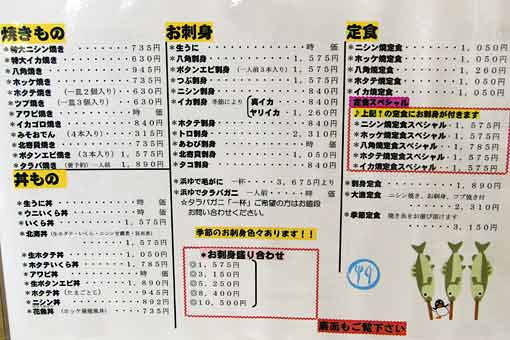 焼きもの
*特大ニシン焼き・・・・・・・735円
*特大イカ焼き・・・・・・・・630円
*八角焼き・・・・・・・・・・945円
*ホッケ焼き・・・・・・・・・735円
*ホタテ焼き(一皿2個入り)・・630円
*ツブ焼き(一皿3個入り)・・・630円
*アワビ焼き・・・・・・・・・時 価
*イカゴロ焼き・・・・・・・・840円
*みそおでん(4本入り)・・・・315円
*北寄貝焼き・・・・・・・・・735円
*ボタンエビ焼(3本入り)1,575円
*タラバ焼き(要予約)一人前 1,890円
丼もの
*生うに丼・・・・・・・・・・時 価
*ウニいくら丼・・・・・・・・時 価
*いくら丼・・・・・・・・・1,575円
*北海丼
1,575円
*生ホタテ丼・・・・・・・・・945円
*ホタテいくら丼・・・・・・1,785円
*アワビ丼・・・・・・・・・・時 価
*生ボタンエビ丼・・・・・・1,890円
*ホタテ丼(たまごとじ)・・・945円
*ニシン丼・・・・・・・・・・892円
*花魚丼・・・・735円
お刺身
*生うに・・・・・・・・・・・時 価
*八角刺身・・・・・・・・・1,155円
*ボタンエビ刺身(一人前3本入り)1,575円
*つぶ刺身・・・・・・・・・・840円
*ニシン刺身・・・・・・・・・840円
*イカ刺身 季節により 真イカ・・840円
ヤリイカ 1,260円
*ホタテ刺身・・・・・・・・・840円
*トロ刺身・・・・・・・・・2,310円
*あわび刺身・・・・・・・・・時 価
*北寄貝刺身・・・・・・・・・840円
*タコ刺身・・・・・・・・・・840円
*浜ゆで毛がに 一杯・・3,675円より
*浜ゆでタラバガニ 一人前・・・時 価
☆タラバガニ「一杯」ご希望の方はお値段
お問い合わせください。
季節のお刺身色々あります!!
*お刺身盛り合わせ
◎1,575円
◎3,150円
◎5,250円
◎8,400円
◎10,500円
定食
*ニシン焼定食・・・・・・・1,050円
*ホッケ焼定食・・・・・・・1,050円
*八角焼定食・・・・・・・・1,260円
*ホタテ焼定食・・・・・・・1,050円
*イカ焼定食・・・・・・・・1,050円
定食スペシャル
♪上記!の定食にお刺身が付きます
*ニシン焼定食スペシャル・・1,575円
*ホッケ焼定食スペシャル・・1,575円
*八角焼定食スペシャル・・・1,785円
*ホタテ焼定食スペシャル・・1,575円
*イカ焼定食スペシャル・・・1,575円
*刺身定食・・・・・・・・・1,890円
*大漁定食 ニシン焼き、お刺身、ツブ焼き付
・・・・・・・2,310円
*季節定食 焼き魚をお選び頂けます
・・・・・・・3,150円
裏面もご覧下さい